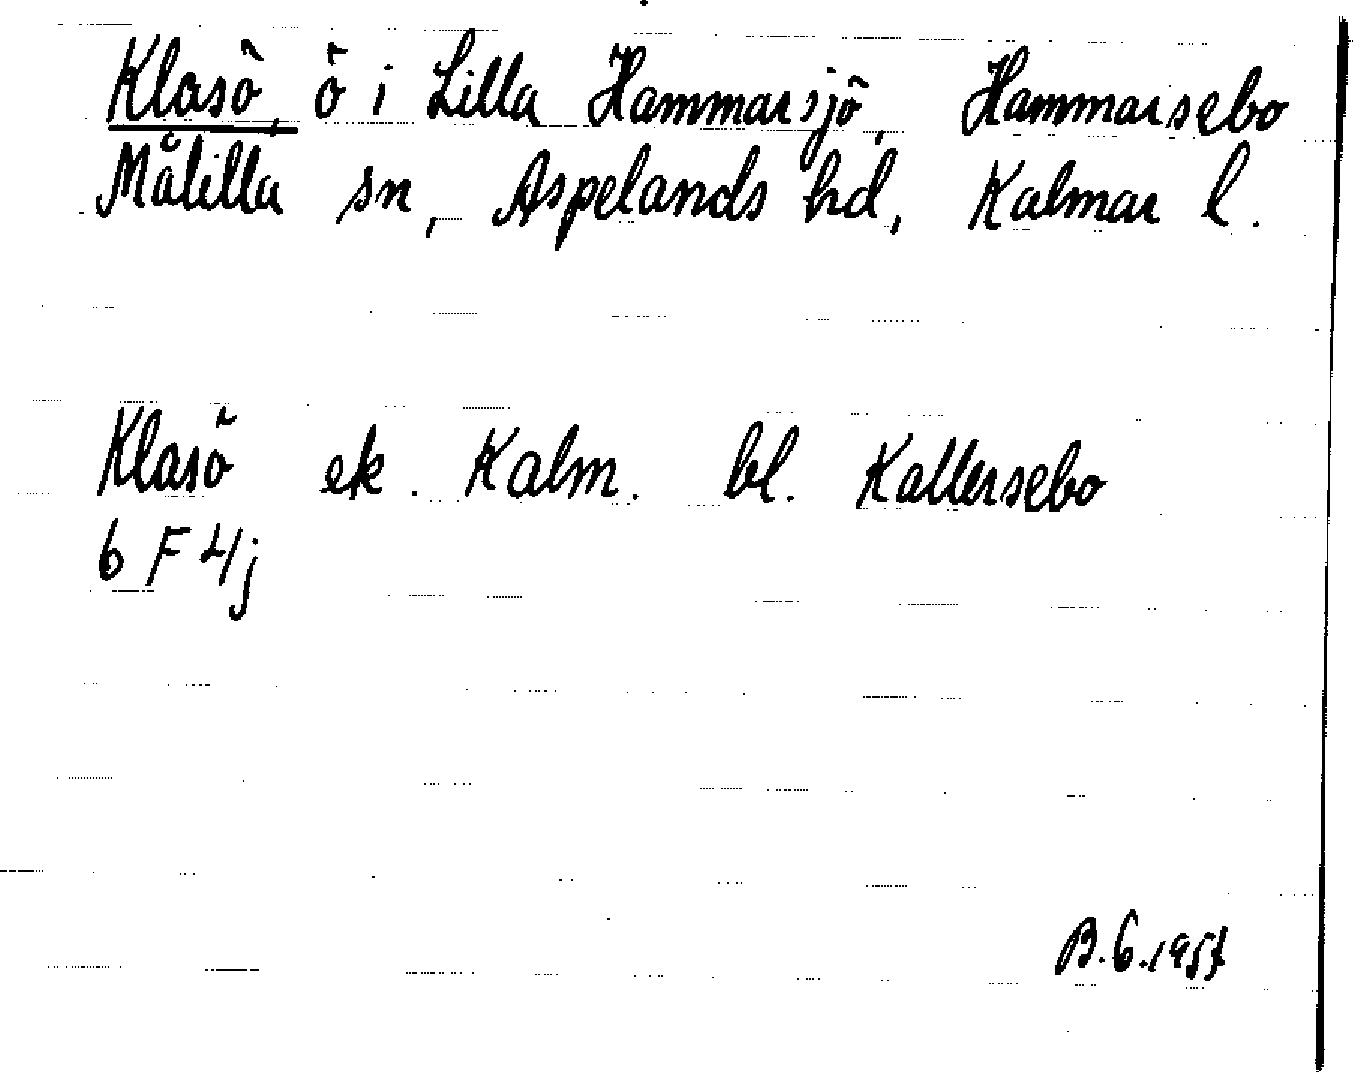 Klasö, ö i Lilla Hammarsjö, Hammarsebo
Målilla sn, Aspelands hd, Kalmar l.
Klasö ek. Kalm. bl. Kallersebo
6 F 4j
B.G.1957